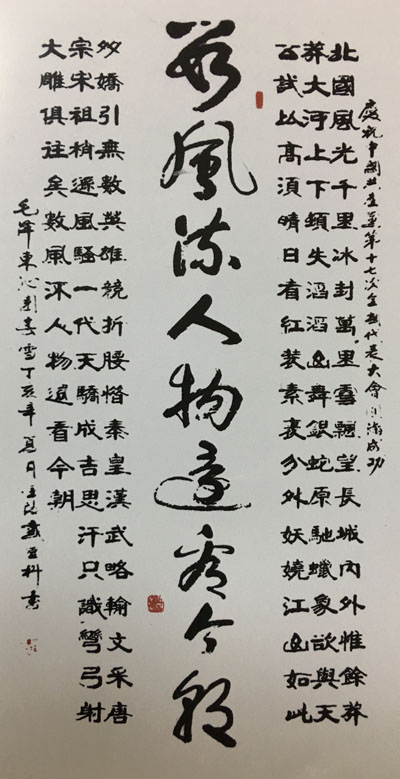 慶祝中國共產黨第十七次全國代表大會圓滿成功
北國風光千里冰封萬里雪飄望長城內外惟餘莽
莽大河上下頓失滔滔山舞銀蛇原馳蠟象欲與天
公試比高須晴日看紅裝素裹分外妖嬈江山如此
數風流人物還看今朝
多嬌引無數英雄競折腰惜秦皇漢武略輸文采唐
宗宋祖稍遜風騷一代天驕成吉思汗只識彎弓射
大雕俱往矣數風流人物還看今朝
毛澤東沁園春雪丁亥年夏月戴科書